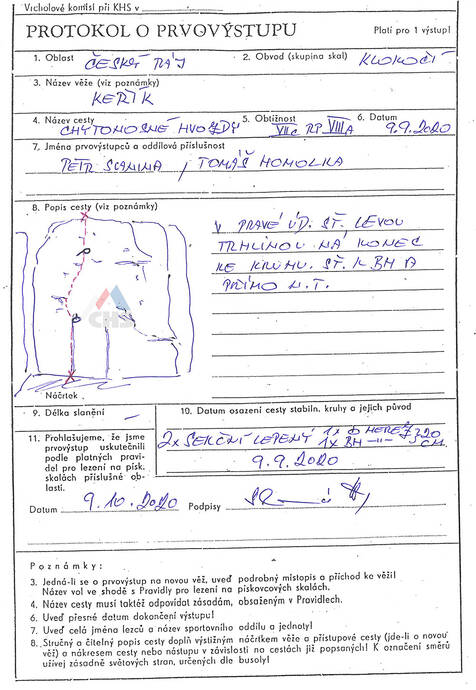 Vrcholové komisi při KHS v
PROTOKOL O PRVOVÝSTUPU
Platí pro 1 výstup!
1. Oblast ČESKÝ RÁJ
2. Obvod (skupina skal) KLOKOČÍ
3. Název věže (viz poznámky)
KEŘÍK
4. Název cesty
CHYTONOSNÉ HVOZDY
5. Obtížnost
VIIc RP VIIIA
6. Datum
9.9.2020
7. Jména prvovýstupců a oddílová příslušnost
PETR SLANINA, TOMÁŠ HOMOLKA
8. Popis cesty (viz poznámky)
V PRAVÉ ÚD. ST. LEVOU
TRHLINOU NA KONEC
KE KRUHU. ST. K BH A
PŘÍMO N.T.
CHS
Náčrtek
9. Délka slanění –
10. Datum osazení cesty stabiln. kruhy a jejich původ
2x SEKČNÍ LEPENÝ 1x
1x BH –"– 20 CM
9.9.2020
11. Prohlašujeme, že jsme
prvovýstup uskutečnili
podle platných pravi-
del pro lezení na písk.
skalách příslušné ob-
lasti.
Datum 9.10.2020 Podpisy
Poznámky:
3. Jedná-li se o prvovýstup na novou věž, uveď podrobný místopis a příchod ke věži!
Název vol ve shodě s Pravidly pro lezení na pískovcových skalách.
4. Název cesty musí taktéž odpovídat zásadám, obsaženým v Pravidlech.
6. Uveď přesné datum dokončení výstupu!
7. Uveď celá jména lezců a název sportovního oddílu a jednoty!
8. Stručný a čitelný popis cesty doplň výstižným náčrtkem věže a přístupové cesty (jde-li o novou
věž) a nákresem cesty nebo nástupu v závislosti na cestách již popsaných! K označení směrů
užívej zásadně světových stran, určených dle busoly!